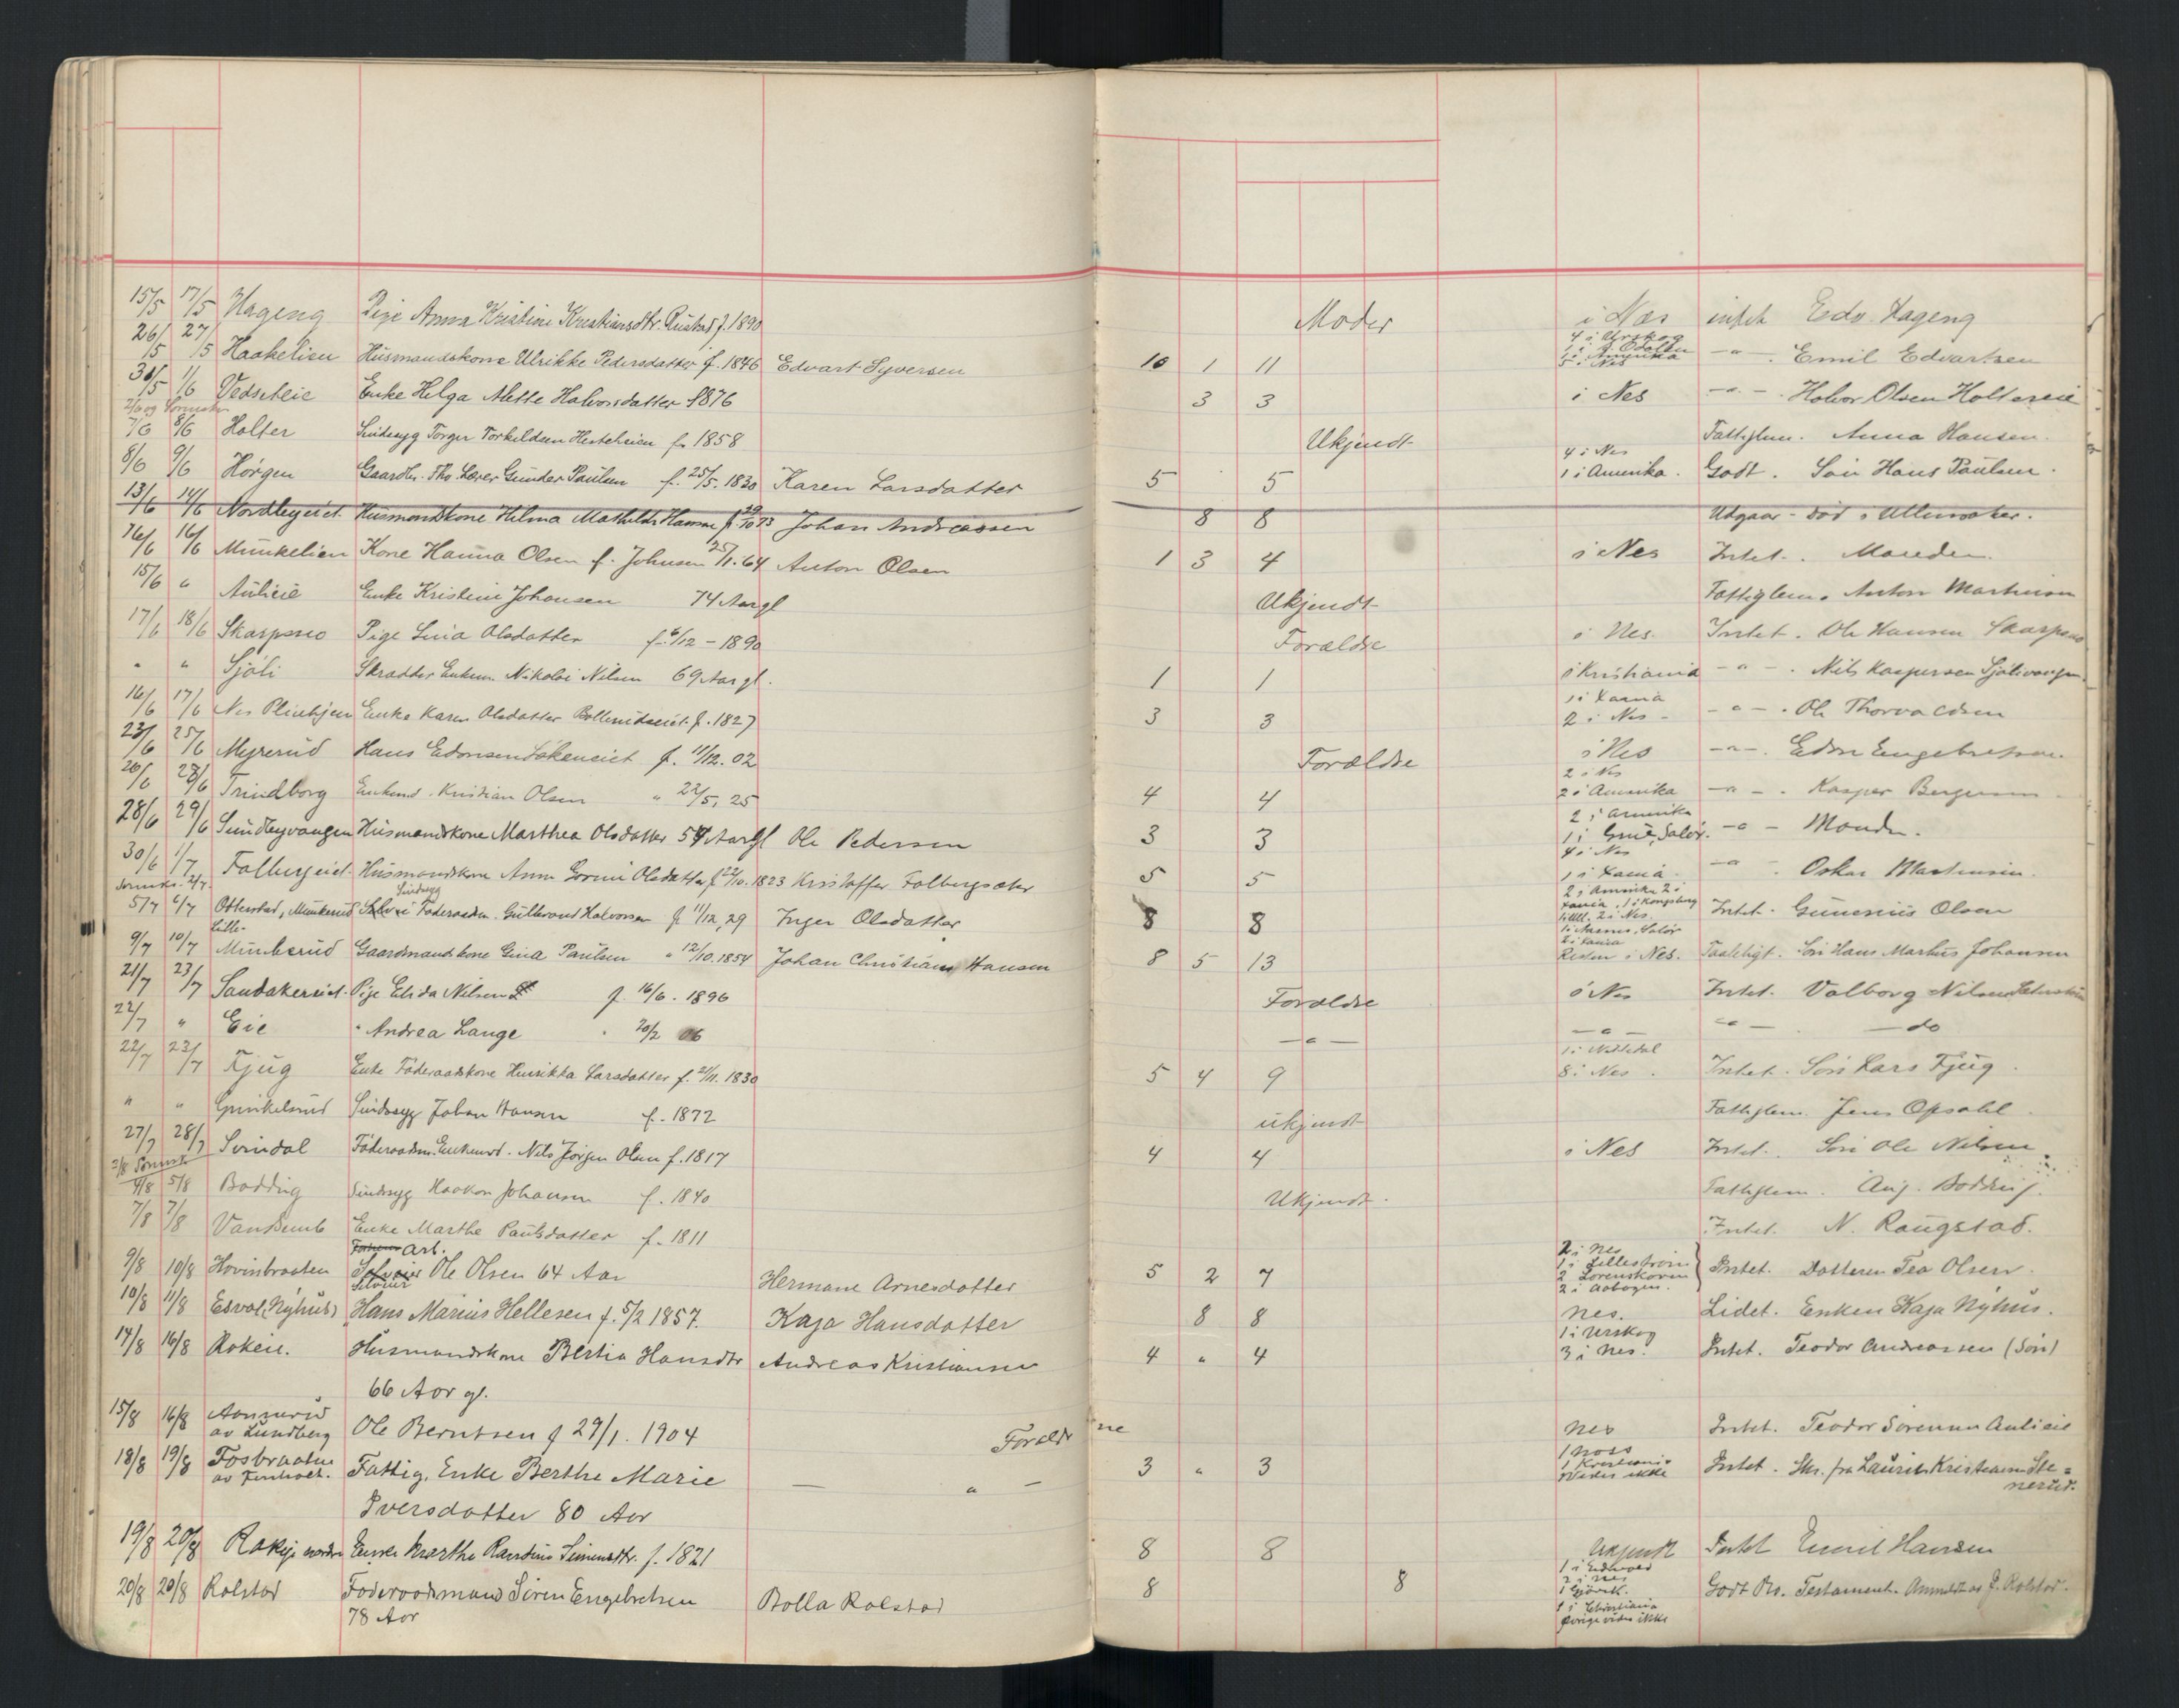 15/5 17/5 Hageng Pige Anna Kristine Kristiansdtr. Rustad f. 1890 Moder i Nes intet Edv. Hageng
26/5 27/5 Haakelien Husmandskone Ulrikke Pedersdatter f. 1846 Edvart Syversen 10 1 11 4 i Urskog 1 i S. Odalen 1 i Amerika 5 i Nes — " — Emil Edvartsen
30/5 1/6 Vedseteie Enke Helga Alette Halvorsdatter 1876 3 3 i Nes — " — Halvor Olsen Holtereie
7/6 8/6 Holter Sindssyg Torger Torkildsen f. 1858 Ukjendt Fattiglem. Anna Hansen.
8/6 9/6 Horgen Gaardbr. Fho. Lærer Gunder Paulsen f. 25/5. 1830 Karen Larsdatter 5 5 4 i Nes 1 i Amerika. Godt. Søn Hans Paulsen.
13/6 14/6 Husmandskone Hilma Mathilde Hansen f 29/10 73 Johan Andreassen 8 8 Udgaar - død i Ullensaker.
16/6 16/6 Munkelien Kone Hanna Olsen f. Johnsen 25/1. 64 Anton Olsen 1 3 4 i Nes Intet. Manden.
15/6 " Aulieie Enke Kristine Johansen 74 Aar gl Ukjendt Fattiglem. Anton Martinsen
17/6 18/6 Skarpsno Pige Lina Olsdatter f. 6/12 - 1890 Forældre i Nes. Intet. Ole Hansen Skarpsno
" " Sjøli Skrædder Enkem. Nikolai Nilsen 69 Aar gl. 1 1 i Kristiania — " — . Nils Kaspersen Sjølivangen.
16/6 17/6 Nes Pleiehjem Enke Karen Olsdatter f. 1827 3 3 1 i Xania 2 i Nes — " — . Ole Thorvaldsen
23/6 25/6 Myrerud Hans Edvinsen Løkeneiet f. 11/12. 02 Forældre i Nes — " — . Edvin Engebretsen
26/6 28/6 Trindborg Enkemd. Kristian Olsen " 22/5, 25 4 4 2 i Nes 2 i Amerika — " — . Kasper Bergersen
28/6 29/6 Sundbyvangen Husmandskone Marthea Olsdatter 54 Aar gl Ole Pedersen 3 3 2 i Amerika 1 i Grue, Solør. — " — Manden.
30/6 1/7 Folbergeiet Husmandskone Anna Gorine Olsdatter f 22/10. 1823 Kristoffer Folbergsæter 5 5 4 i Nes 1 i Xania — " — Oskar Martinsen.
5/7 6/7 Otterstad, Munkerud Føderaadm. Gulbrand Halvorsen f. 11/12, 29 Inger Olsdatter 8 8 2 i Amerika 2 i Xania, 1 i Kongsberg 1 i Ull. 2 i Nes. Intet. Gunerius Olsen
9/7 10/7 Lille- Munkerud Gaardmandskone Gina Paulsen " 12/10. 1854 Johan Christian Hansen 8 5 13 2 i Xania Resten i Nes. Taaleligt. Søn Hans Markus Johansen
21/7 23/7 Sandakereiet. Pige Elida Nilsen f. 16/6. 1896 Forældre i Nes Intet. Valborg Nilsen
22/7 " Eie " Andrea Lange " 20/2 06 — " — — " — — " — — do
22/7 23/7 Fjug Enke Føderaadskone Henrikka Larsdatter f. 21/11. 1830 5 4 9 1 i Nittedal 8 i Nes. Intet. Søn Lars Fjug.
" " Sindssyg Johan Hansen f. 1872 ukjendt Fattiglem. Jens Opsahl.
27/7 28/7 Svindal Føderaadm. Enkemd. Nils Jørgen Olsen f. 1817 4 4 i Nes Intet. Søn Ole Nilsen
4/8 5/8 Bodding Sindssyg Haakon Johansen f. 1840 Ukjendt. Fattiglem. Aug. Bodding.
7/8 7/8 Enke Marthe Paulsdatter f. 1811 Intet. N. Raugstad.
9/8 10/8 Hovinbraaten Arb. Ole Olsen 64 Aar Hermane Arnesdatter 5 2 7 2 i Nes 1 i Lillestrøm 2 Lørenskoven 2 i Aabogen. Intet. Datteren Tea Olsen.
10/8 11/8 Esval (Nyhus) Hans Marius Hellesen f. 5/2 1857. Kaja Hansdatter 8 8 Nes. Lidet. Enken Kaja Nyhus.
14/8 16/8 Rokeie. Husmandskone Bertia Hansdtr Andreas Kristiansen 4 " 4 1 i Urskog 3 i Nes. Intet. Teodor Andreassen (Søn)
66 Aar gl.
15/8 16/8 Aanerud av Lundberg Ole Berntsen f 29/1. 1904 Forældrene Nes Intet. Teodor Sørensen Aulieie
18/8 19/8 Fosbraaten Fattig. Enke Berthe Marie — " — 3 " 3 1 Noss 1 Kristiania vides ikke Intet. Skr. fra Laurits Kristiansen Ste=
Iversdatter 80 Aar nerud.
19/8 20/8 Rokeje nordre Enke Marthe Randine Simensdtr. f. 1821 8 8 Ukjendt Intet Emil Hansen
20/8 20/8 Rolstad Føderaadsmand Søren Engebretsen Bolla Rolstad 8 8 1 i Eidsvold 2 i Nes 1 Gjøvik. 1 i Christiania øvrige vides ikke Godt Bo. Testament. Anmeldt av J. Rolstad.
78 Aar